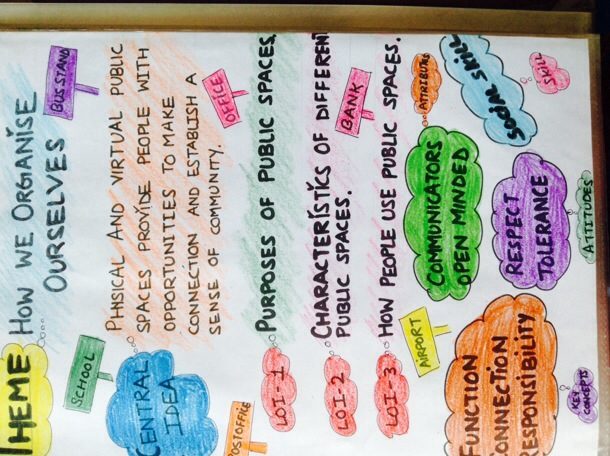 THEME
HOW WE ORGANISE
OURSELVES
BUS STAND
SCHOOL
CENTRAL
IDEA
PHSICAL AND VIRTUAL PUBLIC
SPACES PROVIDE PEOPLE WITH
OPPORTUNITIES TO MAKE
CONNECTION AND ESTABLISH A
SENSE OF COMMUNITY.
OFFICE
POSTOFFICE
LOI-1
PURPOSES OF PUBLIC SPACES,
LOI-2
CHARACTERISTICS OF DIFFERENT
PUBLIC SPACES.
BANK
LOI-3
HOW PEOPLE USE PUBLIC SPACES.
AIRPORT
ATTRIBUTES
COMMUNICATORS
OPEN MINDED
SOCIAL SKILL
SKILL
FUNCTION
CONNECTION
RESPONSIBILITY
KEY
CONCEPTS
RESPECT
TOLERANCE
ATTITUDES